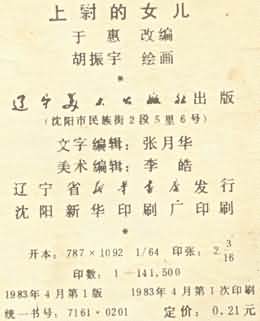 上尉的女儿
于惠 改编
胡振宇 绘画
辽宁美术出版社出版
(沈阳市民族街2段5里6号)
文字编辑：张月华
美术编辑：李皓
辽宁省新华书店发行
沈阳新华印刷厂印刷
开本：787×1092 1/64 印张：2 3/16
印数：1—141,500
1983年4月第1版 1983年4月第1次印刷
统一书号：7161·0201 定价：0.21元